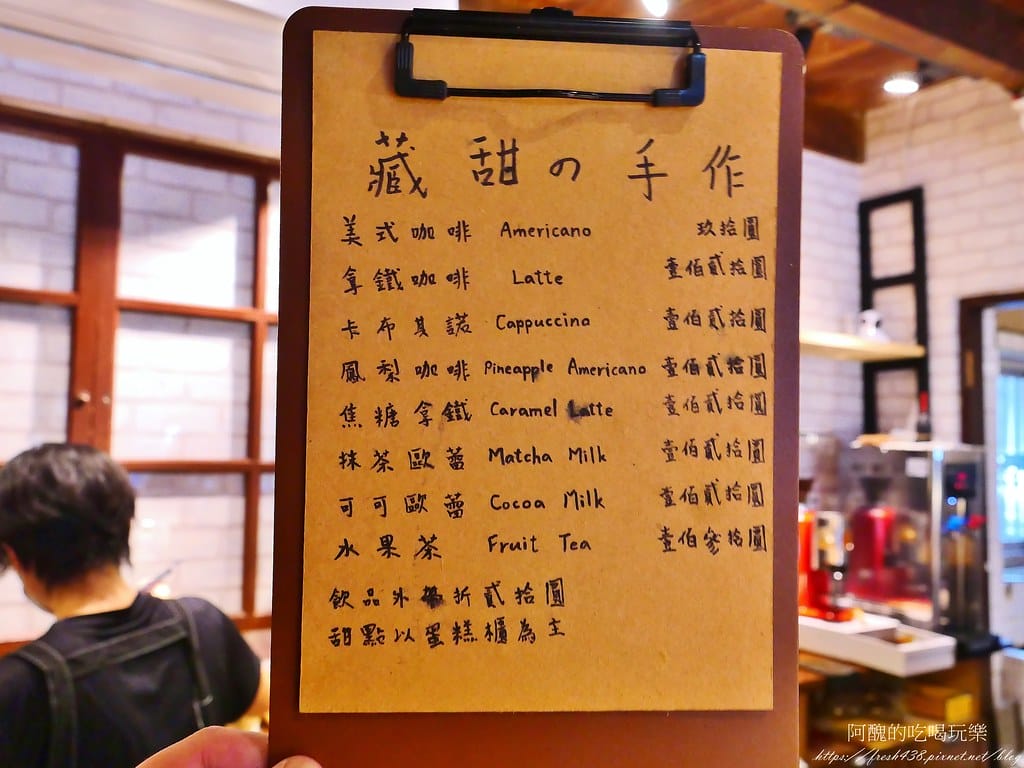 藏甜の手作
美式咖啡 Americano 玖拾圓
拿鐵咖啡 Latte 壹佰貳拾圓
卡布其諾 Cappuccino 壹佰貳拾圓
鳳梨咖啡 Pineapple Americano 壹佰貳拾圓
焦糖拿鐵 Caramel Latte 壹佰貳拾圓
抹茶歐蕾 Matcha Milk 壹佰貳拾圓
可可歐蕾 Cocoa Milk 壹佰貳拾圓
水果茶 Fruit Tea 壹佰參拾圓
飲品外帶折貳拾圓
甜點以蛋糕櫃為主
阿醜的吃喝玩樂
https://fresh438.pixnet.net/blog